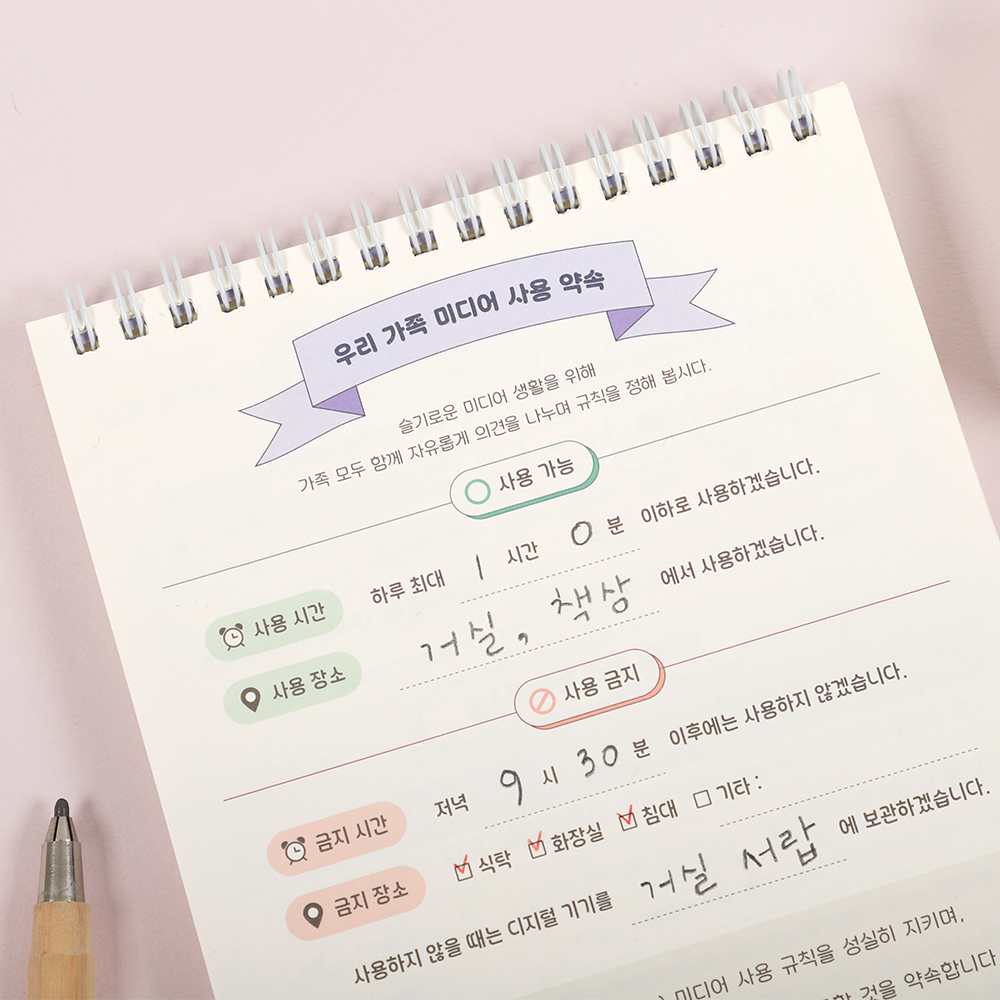 우리 가족 미디어 사용 약속
슬기로운 미디어 생활을 위해
가족 모두 함께 자유롭게 의견을 나누며 규칙을 정해 봅시다.
사용 가능
사용 시간 하루 최대 1 시간 0 분 이하로 사용하겠습니다.
사용 장소 거실, 책상 에서 사용하겠습니다.
사용 금지
금지 시간 저녁 9 시 30 분 이후에는 사용하지 않겠습니다.
금지 장소 식탁 화장실 침대 기타 :
사용하지 않을 때는 디지털 기기를 거실 서랍 에 보관하겠습니다.
미디어 사용 규칙을 성실히 지키며,
것을 약속합니다